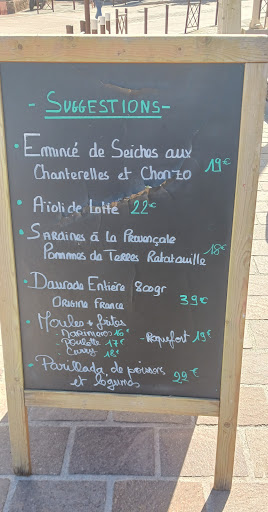 - SUGGESTIONS -
• Emincé de Seiches aux
Chanterelles et Chorizo 19€
• Aïoli de Lotte 22€
• SARDINES à la Provençale
Pommes de Terres Ratatouille 18€
• DAURADE ENTIÈRE 800gr
ORIGINE FRANCE 39€
• Moules + frites
- Marinières 16€ - Roquefort 19€
- Poulette 17€
- Curry 18€
• Parillada de poissons
et légumes 29€